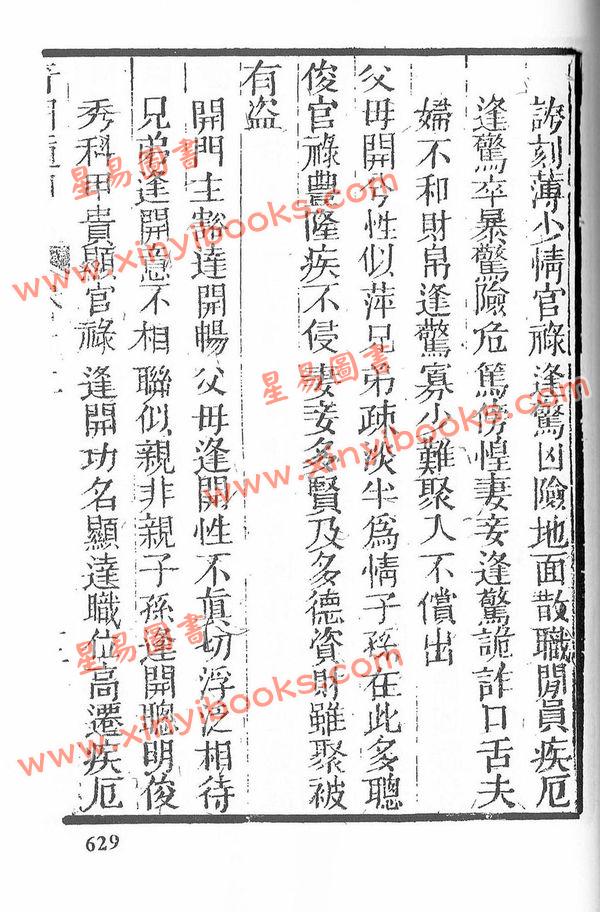 謗刻薄少情官祿逢驚凶險地面散職閒員疾厄
逢驚卒暴驚險危篤傍惶妻妾逢驚詭詐口舌夫
婦不和財帛逢驚寡少難聚人不償出
父母開兮性似萍兄弟疎淡半爲情子孫在此多聰
俊官祿豐隆疾不侵妻妾多賢及多德資財雖聚被
有盜
開門主豁達開暢父母逢開性不眞切浮泛相待
兄弟逢開恩不相聯似親非親子孫逢開聰明俊
秀科甲貴顯官祿逢開功名顯達職位高遷疾厄
629
星易圖書
www.xinyibooks.com
星易圖書
www.xinyibooks.com
星易圖書
www.xinyibooks.com